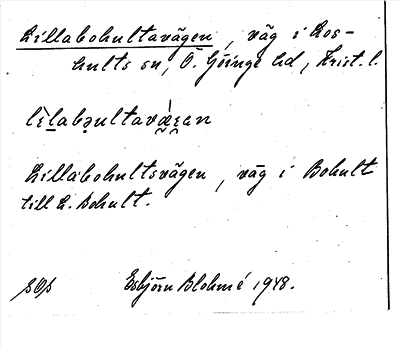 Lillabohultavägen, väg i Los-
hults sn, Ö. Göinge hd, Krist. l.
Lillabohultsvägen, väg i Bohult
till L. Bohult.
Esbjörn Blohmé 1948.